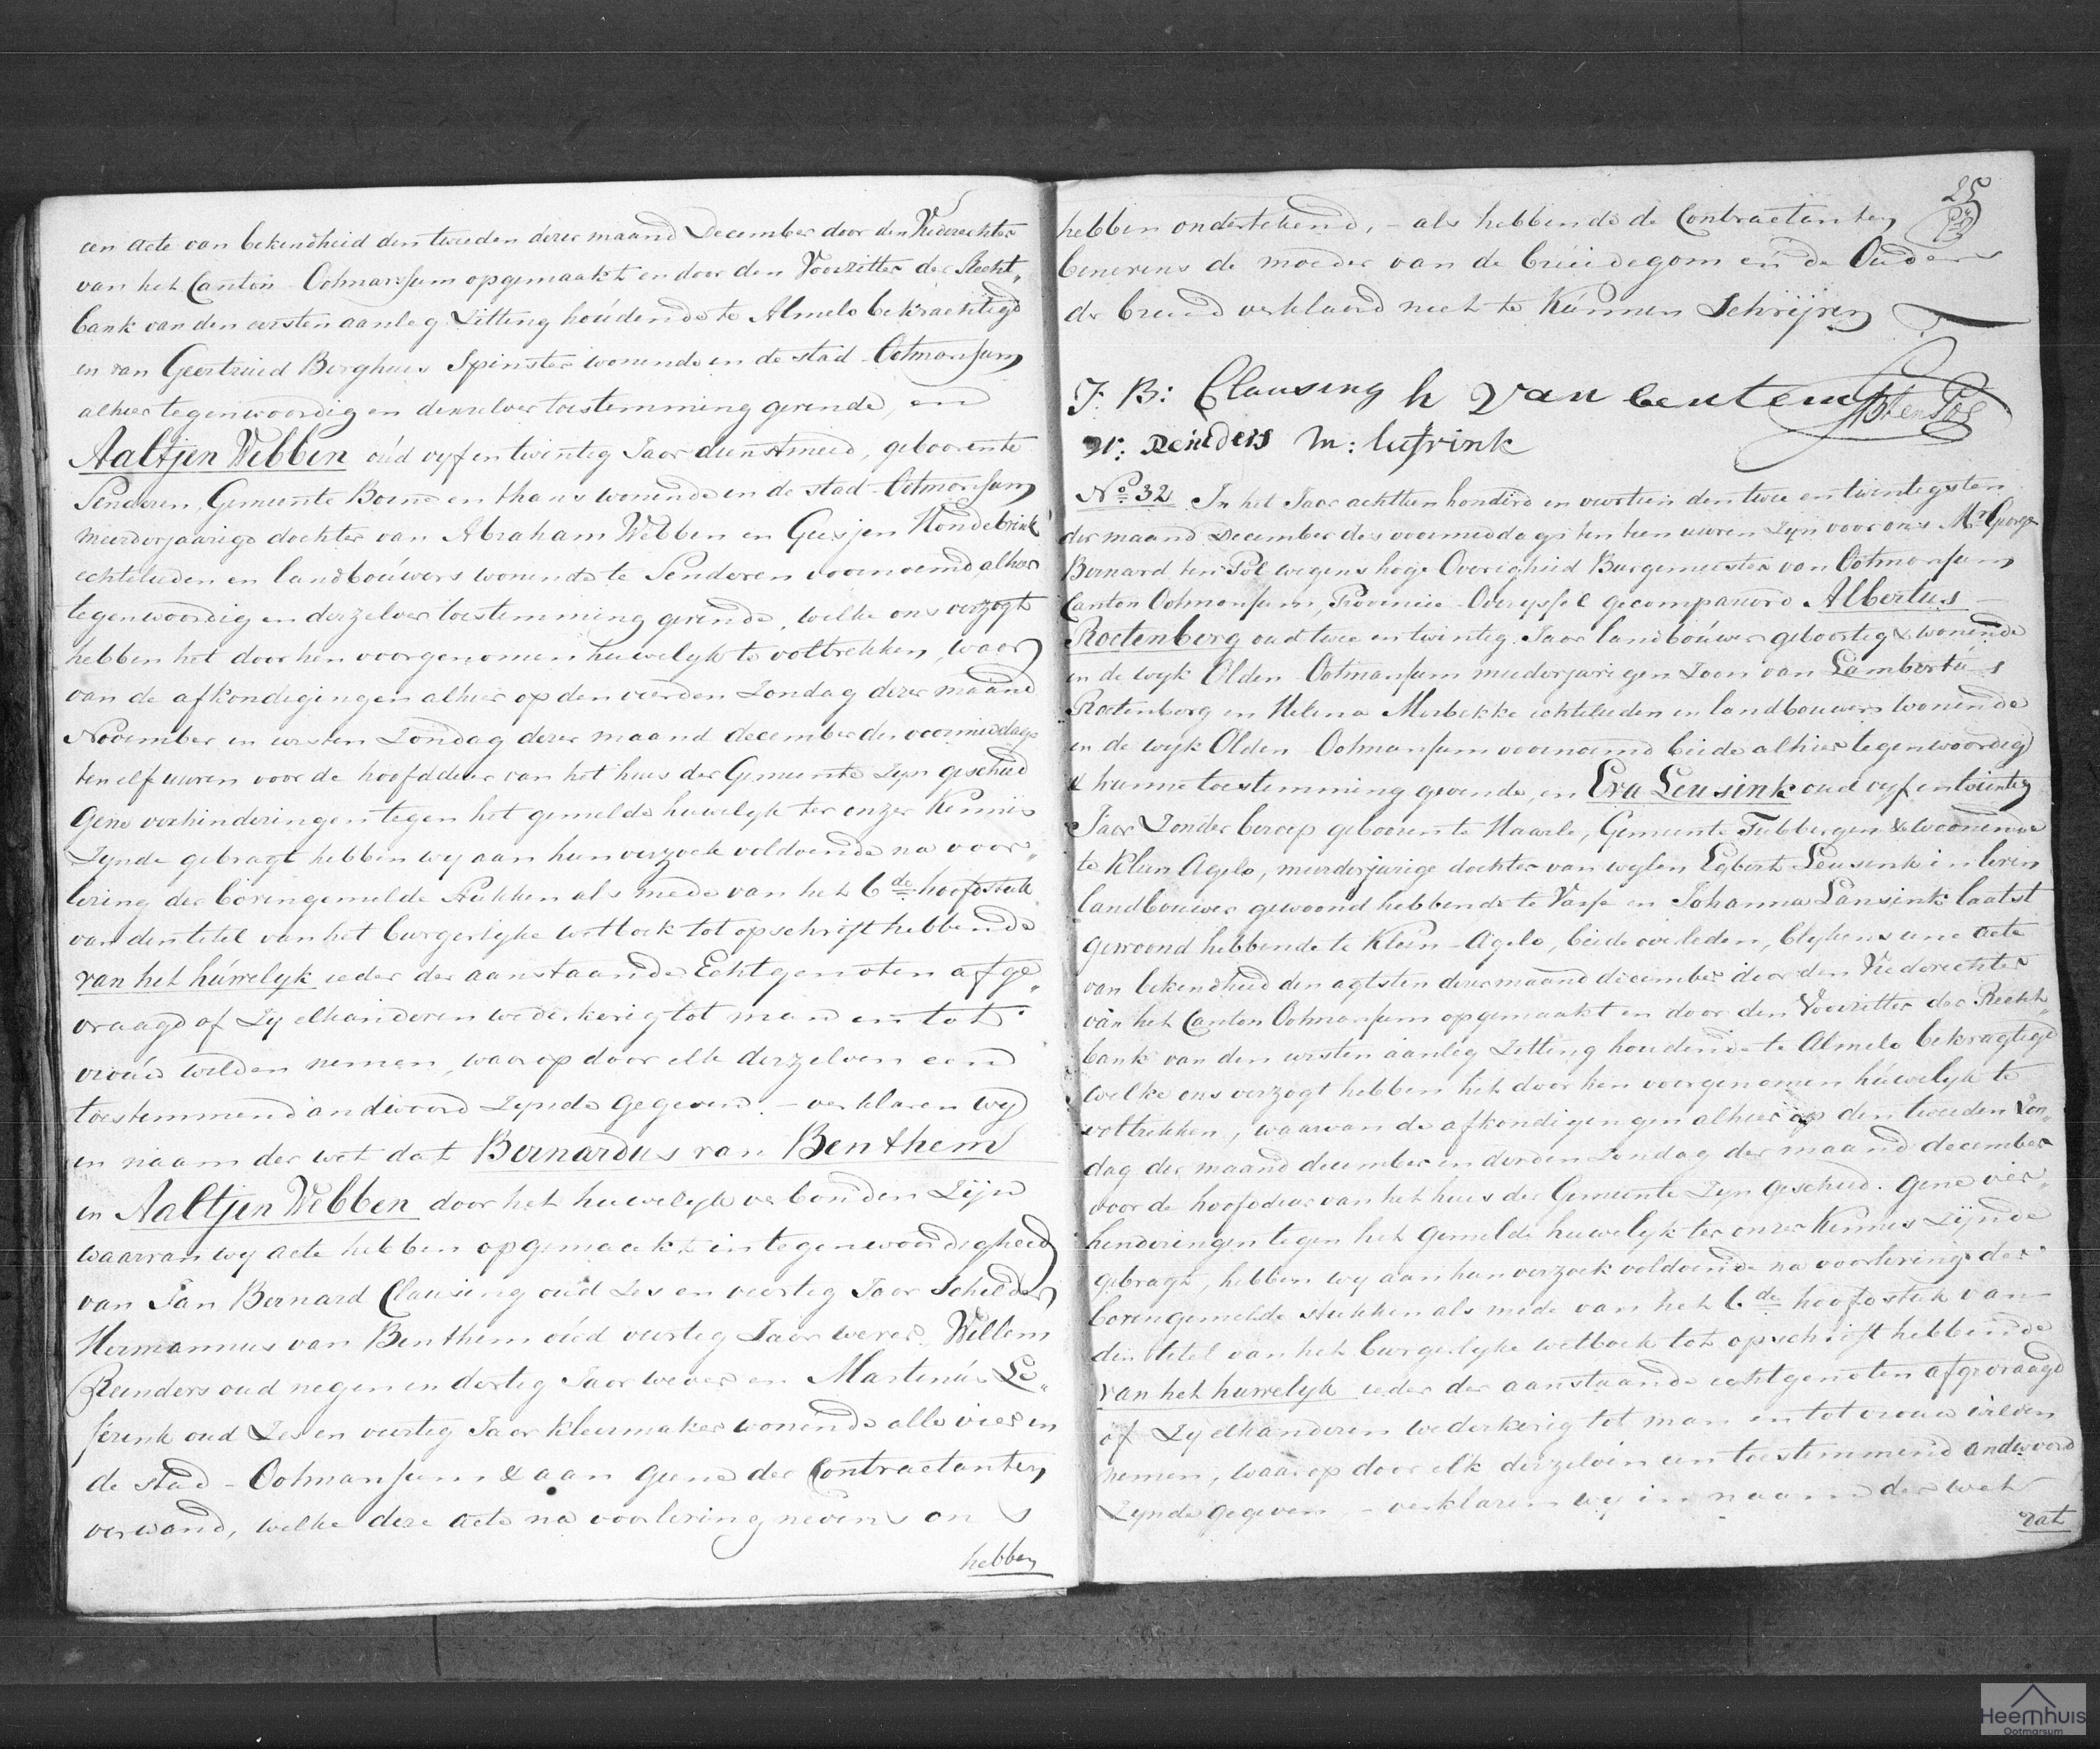 een acte van bekendheid den tweeden dezer maand December door den Vrederechter
van het Canton Ootmarssum opgemaakt en door den Voorzitter der Recht„
bank van den eersten aanleg Zitting houdende te Almelo bekrachtigd
en van Geertruid Borghuis Spinster wonende in de stad Ootmarsum
alhier tegenwoordig en derzelver toestemming gevende, en
Aaltjen Webben oud vyf en twintig Jaar dienstmeid, geboren te
Senderen, Gemeente Borne en thans wonende in de stad Ootmarsum
meerderjaarige dochter van Abraham Webben en Geesjen Hondebrink
echtelieden en landbouwers wonende te Senderen voornoemd, alhier
tegenwoordig en derzelver toestemming gevende, welke ons verzogt
hebben het door hen voorgenomen huwelyk te voltrekken, waar
van de afkondigingen alhier op den vierden Zondag dezer maand
November en eersten Zondag dezer maand december des voormiddags
ten elf uuren voor de hoofddeur van het huis der Gemeente Zyn geschied
Gene verhinderingen tegen het gemelde huwelyk ter onzer Kennis
Zynde gebragt hebben wy aan hun verzoek voldoende na voor„
lezing der bovengemelde stukken als mede van het 6de hoofdstuk
van den titel van het burgerlyke wetboek tot opschrift hebbende
van het huwelyk ieder der aanstaande Echtgenoten afge„
vraagd of Zy elkanderen wederkerig tot man en tot
vrouw wilden nemen, waarop door elk derzelven een
toestemmend andwoord Zynde gegeven. – verklaren wy
in naam der wet dat Bernardus van Benthem
en Aaltjen Webben door het huwelyk verbonden Zijn
waarvan wy acte hebben opgemaakt in tegenwoordigheid
van Jan Bernard Clausing oud Zes en veertig Jaar Schilder
Hermannus van Benthem oud veertig Jaar wever, Willem
Reinders oud negen en dertig Jaar wever en Martinus Le„
ferink oud Zes en veertig Jaar kleermaker wonende alle vier in
de stad Ootmarsum & aan geene der Contractanten
verwand, welke deze acte na voorlezing nevens ons
hebben
25
hebben ondertekend, – als hebbende de Contractanten
benevens de moeder van de bruidegom en de Ouders
der bruid verklaard niet te Kunnen Schrijven
J: B: Clausing h van bentem GBtenPol
W: Reinders M: lefrink
No 32 In het Jaar achttien honderd en veertien den twee en twintigsten
der maand December des voormiddags ten tien uuren Zyn voor ons Mr George
Bernard ten Pol wegens hoge Overigheid Burgemeester van Ootmarsum
Canton Ootmarsum, Provincie Overyssel gecompareerd Albertus
Roetenberg oud twee en twintig Jaar landbouwer geboortig & wonende
in de wyk Olden Ootmarsum meederjarigen Zoon van Lambertus
Roetenberg en Helena Morbekke echtelieden en landbouwers wonende
in de wyk Olden Ootmarsum voornoemd beide alhier tegenwoordig
& hunne toestemming gevende, en Eva Leusink oud vyf en twintig
Jaar Zonder beroep geboren te Haarle, Gemeente Tubbergen & woonende
te Klein Agelo, meerderjarige dochter van wylen Egbert Leusink in leven
landbouwer gewoond hebbende te Vasse en Johanna Lansink laatst
gewoond hebbende te Klein Agelo, beide overleden, blykens eene acte
van bekendheid den agtsten dezer maand december door den Vrederechter
van het Canton Ootmarsum opgemaakt en door den Voorzitter der Recht„
bank van den eersten aanleg Zitting houdende te Almelo bekragtigd
welke ons verzogt hebben het door hen voorgenomen huwelyk te
voltrekken, waarvan de afkondigingen alhier op den tweeden Zon„
dag der maand december en derden Zondag der maand december
voor de hoofddeur van het huis der Gemeente Zyn geschied. Gene ver„
hinderingen tegen het gemelde huwelyk ter onzer Kennis Zijnde
gebragt, hebben wy aan hun verzoek voldoende na voorlezing der
bovengemelde stukken als mede van het 6de hoofdstuk van
den titel van het burgerlyke wetboek tot opschrift hebbende
van het huwelyk ieder der aanstaande echtgenoten afgevraagd
of Zy elkanderen wederkerig tot man en tot vrouw wilden
nemen, waarop door elk derzelven een toestemmend andwoord
Zynde gegeven – verklaren wy in naam der wet
dat
Heemhuis
Ootmarsum